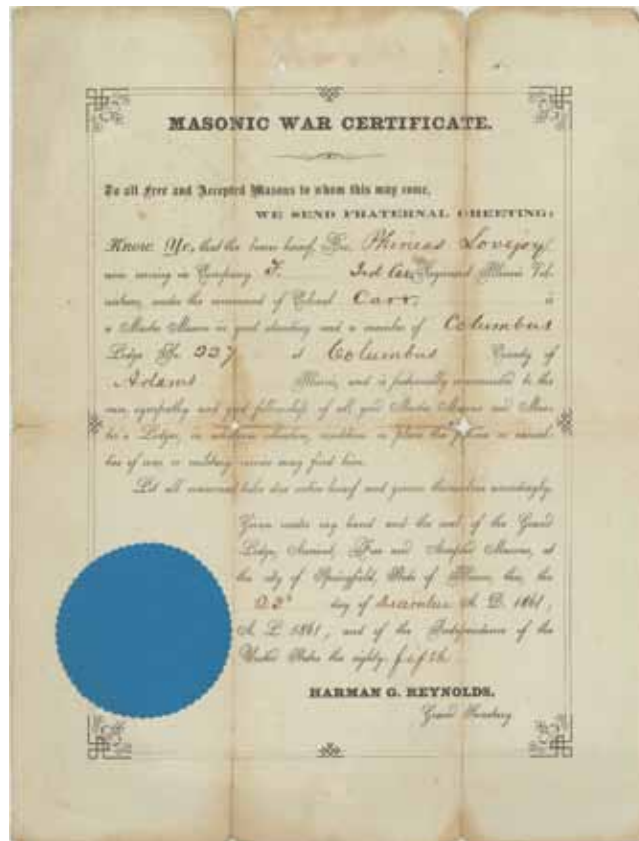 MASONIC WAR CERTIFICATE.
To all Free and Accepted Masons to whom this may come,
WE SEND FRATERNAL GREETING:
Know Ye, that the bearer hereof, Bro. Phineas Lovejoy
now serving in Company F. Regiment Illinois Vol-
unteers, under the command of Colonel Carr, is
a Master Mason in good standing and a member of Columbus
Lodge No. 227 at Columbus County of
Adams Illinois, and is fraternally commended to the
care, sympathy and good fellowship of all good Master Masons and Maso-
nic Lodges, in whatever situation, condition or place the fortune or casual-
ties of war or military service may find him.
Let all concerned take due notice hereof and govern themselves accordingly.
Given under my hand and the seal of the Grand
Lodge, Ancient, Free and Accepted Masons, at
the city of Springfield, State of Illinois, this, the
day of December A. D. 1861,
A. L. 5861, and of the Independence of the
United States the eighty-fifth
HARMAN G. REYNOLDS,
Grand Secretary.